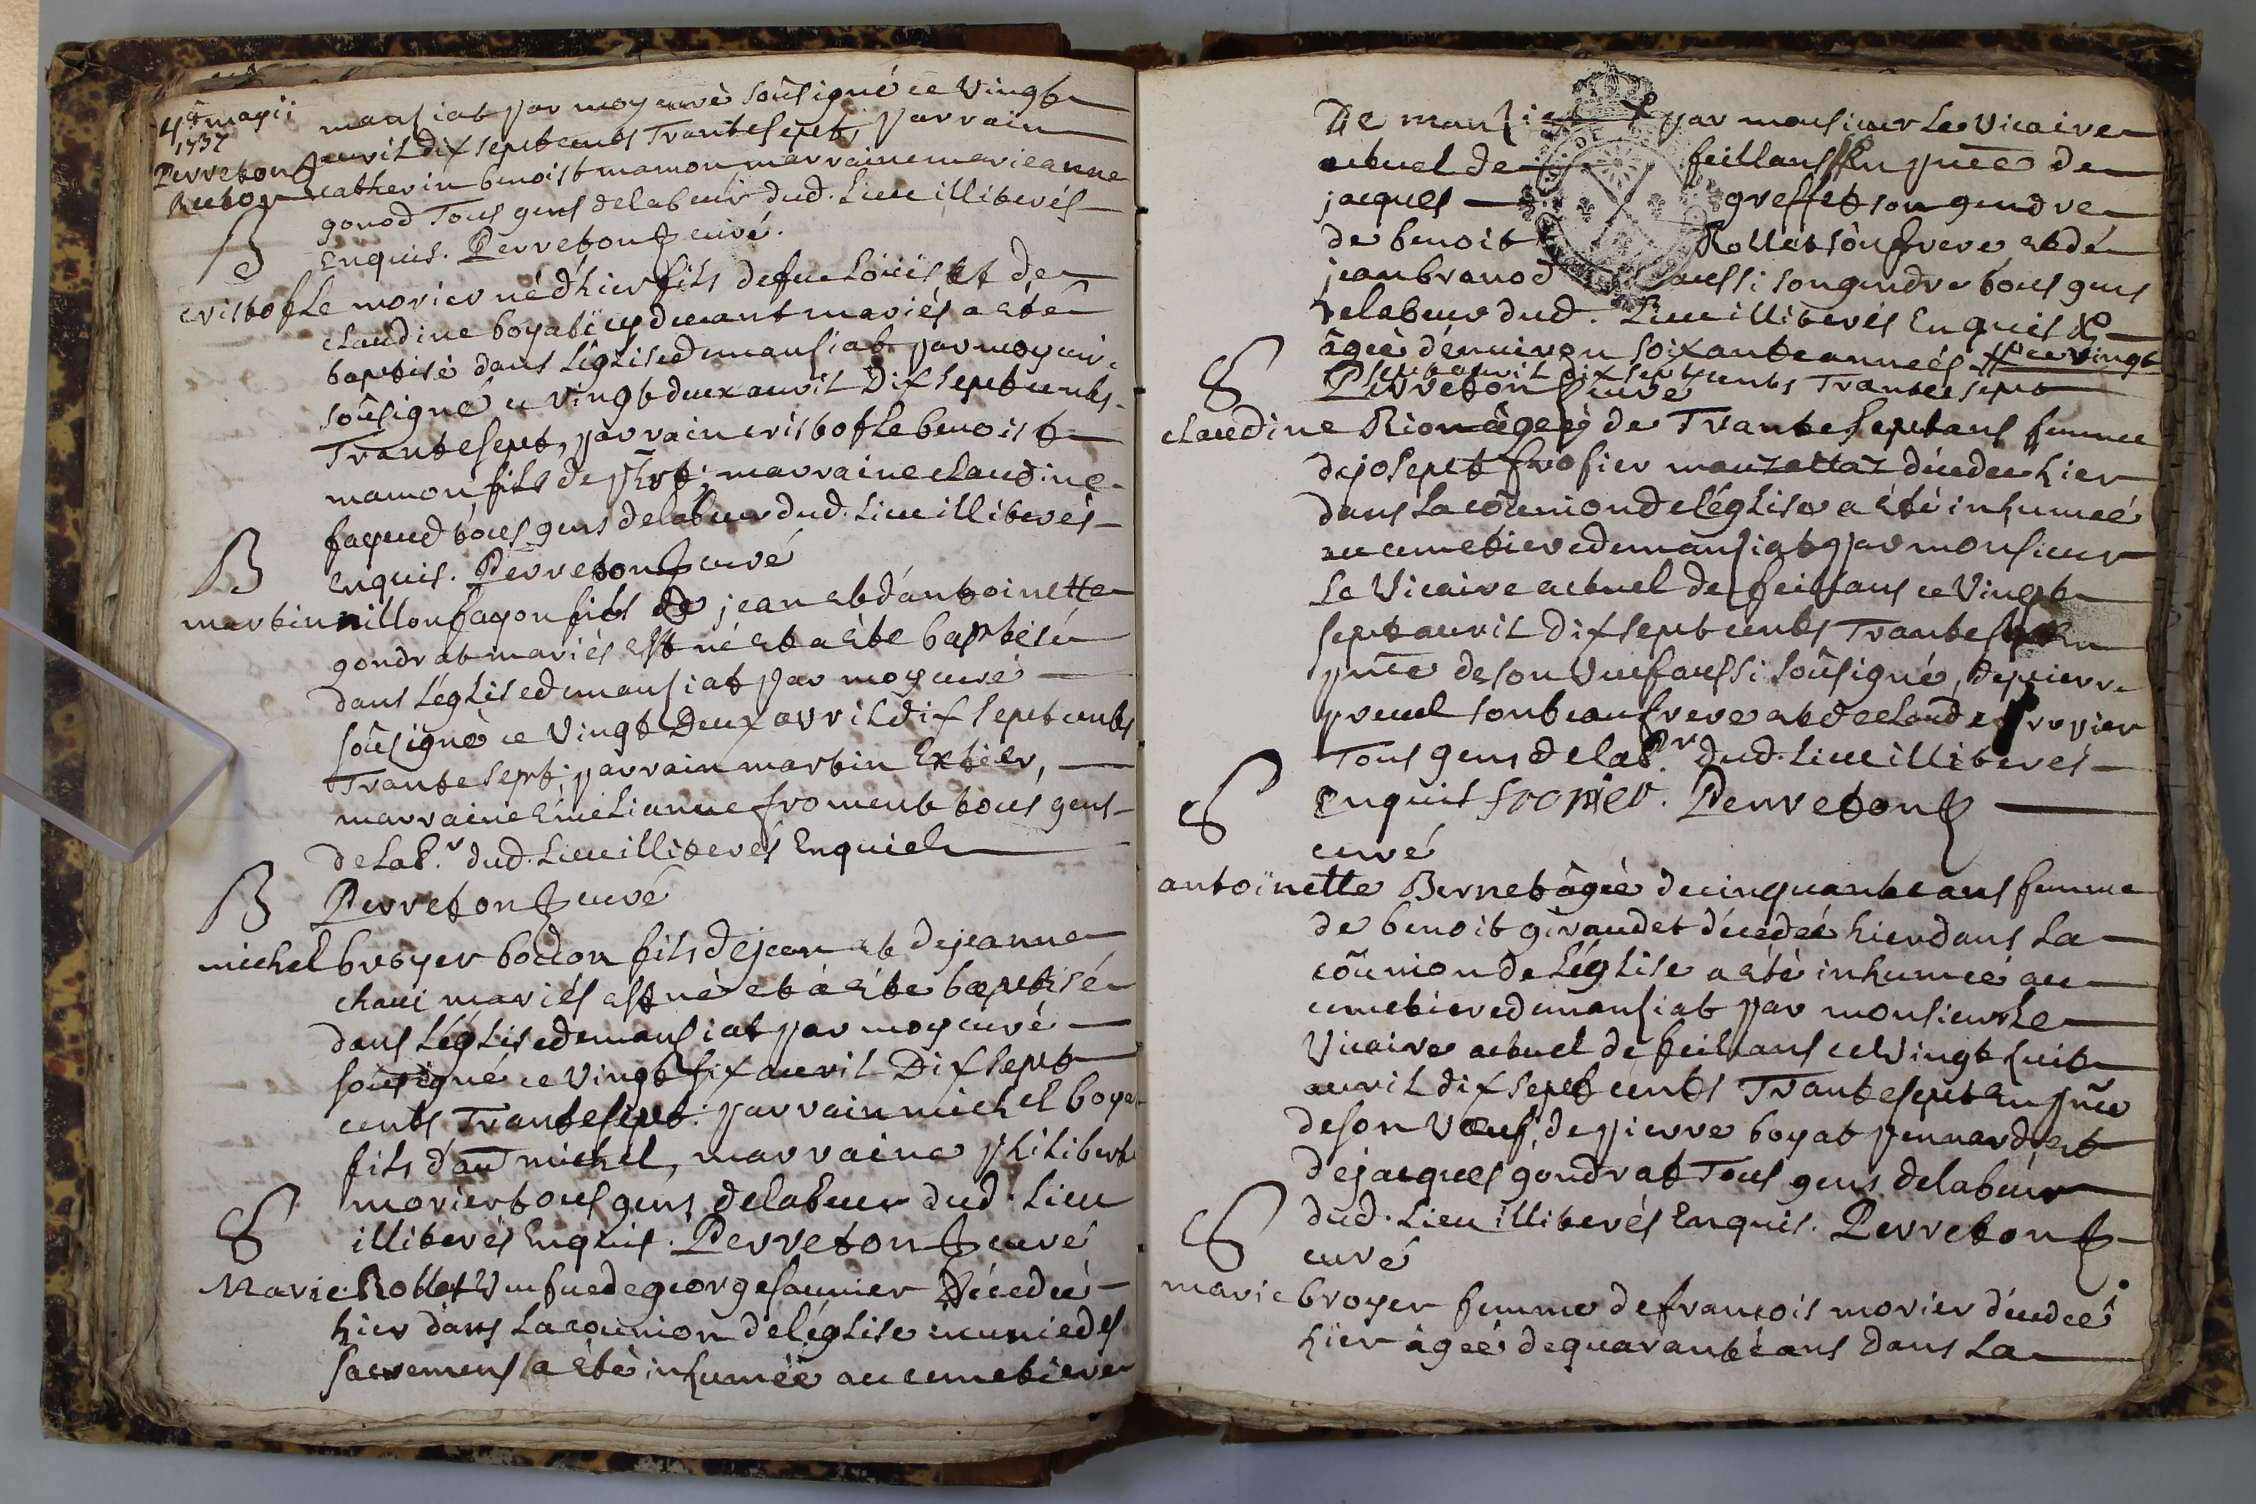 4a maÿii
1737
Perreton
Rector
mansiat par moy curé soûsigné ce vingt
avril dix sept cents Trante sept, parrain
catherin benoist mamon marraine marieanne
gonod Tous gens de labeur dud. Lieu illiterés
Enquis. Perreton curé.
B
cristofle morier né d'hier fils de feu Loüis et de
claudine boyat icy deuant mariés a eté
baptisé dans L'église de mansiat par moy curé
soûsigné ce vingt deux avril Dix sept cents
Trante sept, parrain cristofle benoist
mamon fils de marraine claudine
fayeud tous gens de labeur dud. Lieu illiterés
enquis. Perreton curé
B
martin nillon fayon fils de jean et d'antoinette
gondrat mariés est né et a eté baptisé
dans L'église de mansiat par moy curé
soûsigné ce vingt Deux avril dix sept cents
Trante sept; parrain martin Extier,
marraine Emelianne froment tous gens
de lab.r dud. Lieu illiterés Enquis
B
Perreton curé
michel broyer bodon fils de jean et de jeanne
chaui mariés est né et a eté baptisé
dans L'église de mansiat par moy curé
soûsigné ce vingt six avril Dix sept
cents Trante sept. parrain michel boya
fils d'au michel, marraine philibert
morier tous gens de labeur dud. Lieu
illiterés Enquis. Perreton curé
S
Marie Rollet veufue de george saunier Décedée
hier dans La coûnion de l'église munie des
sacremens a eté inhumée au cemetiere
De mansiat par monsieur Le vicaire
actuel de feillans En pn̄ce de
jacques greffet son gendre
de benoit Rollet son frere et de
jean branod aussi son gendre tous gens
de labeur dud. Lieu illiterés Enquis &
âgée d'enuiron soixante années ce vingt
sept avril dix sept cents Trante sept
Perreton curé
S
claudine Rion âgée de Trante sept ans femme
de josept frofier mauzallaz décedée hier
dans La coûnion de l'église a eté inhumée
au cemetiere de mansiat par monsieur
Le vicaire actuel de feillans ce vingt
sept avril Dix sept cents Trante sept En
pn̄ce de son veuf aussi soûsigné, de pierre
preuel son beaufrere et de claude fropier
Tous gens de lab.r dud. Lieu illiterés
Enquis fropier. Perreton
curé
S
antoïnette Bernet âgée de cinquante ans femme
de benoit giraudet décedée hier dans La
coûnion de L'église a eté inhumée au
cemetiere de mansiat par monsieur Le
vicaire actuel de feillans ce vingt huit
avril dix sept cents Trante sept En pn̄ce
de son veuf, de pierre boyat pennard et
de jacques gondrat Tous gens de labeur
dud. Lieu illiterés Enquis. Perreton
curé
S
marie broyer femme de françois morier décedée
hier âgée de quarante ans dans La